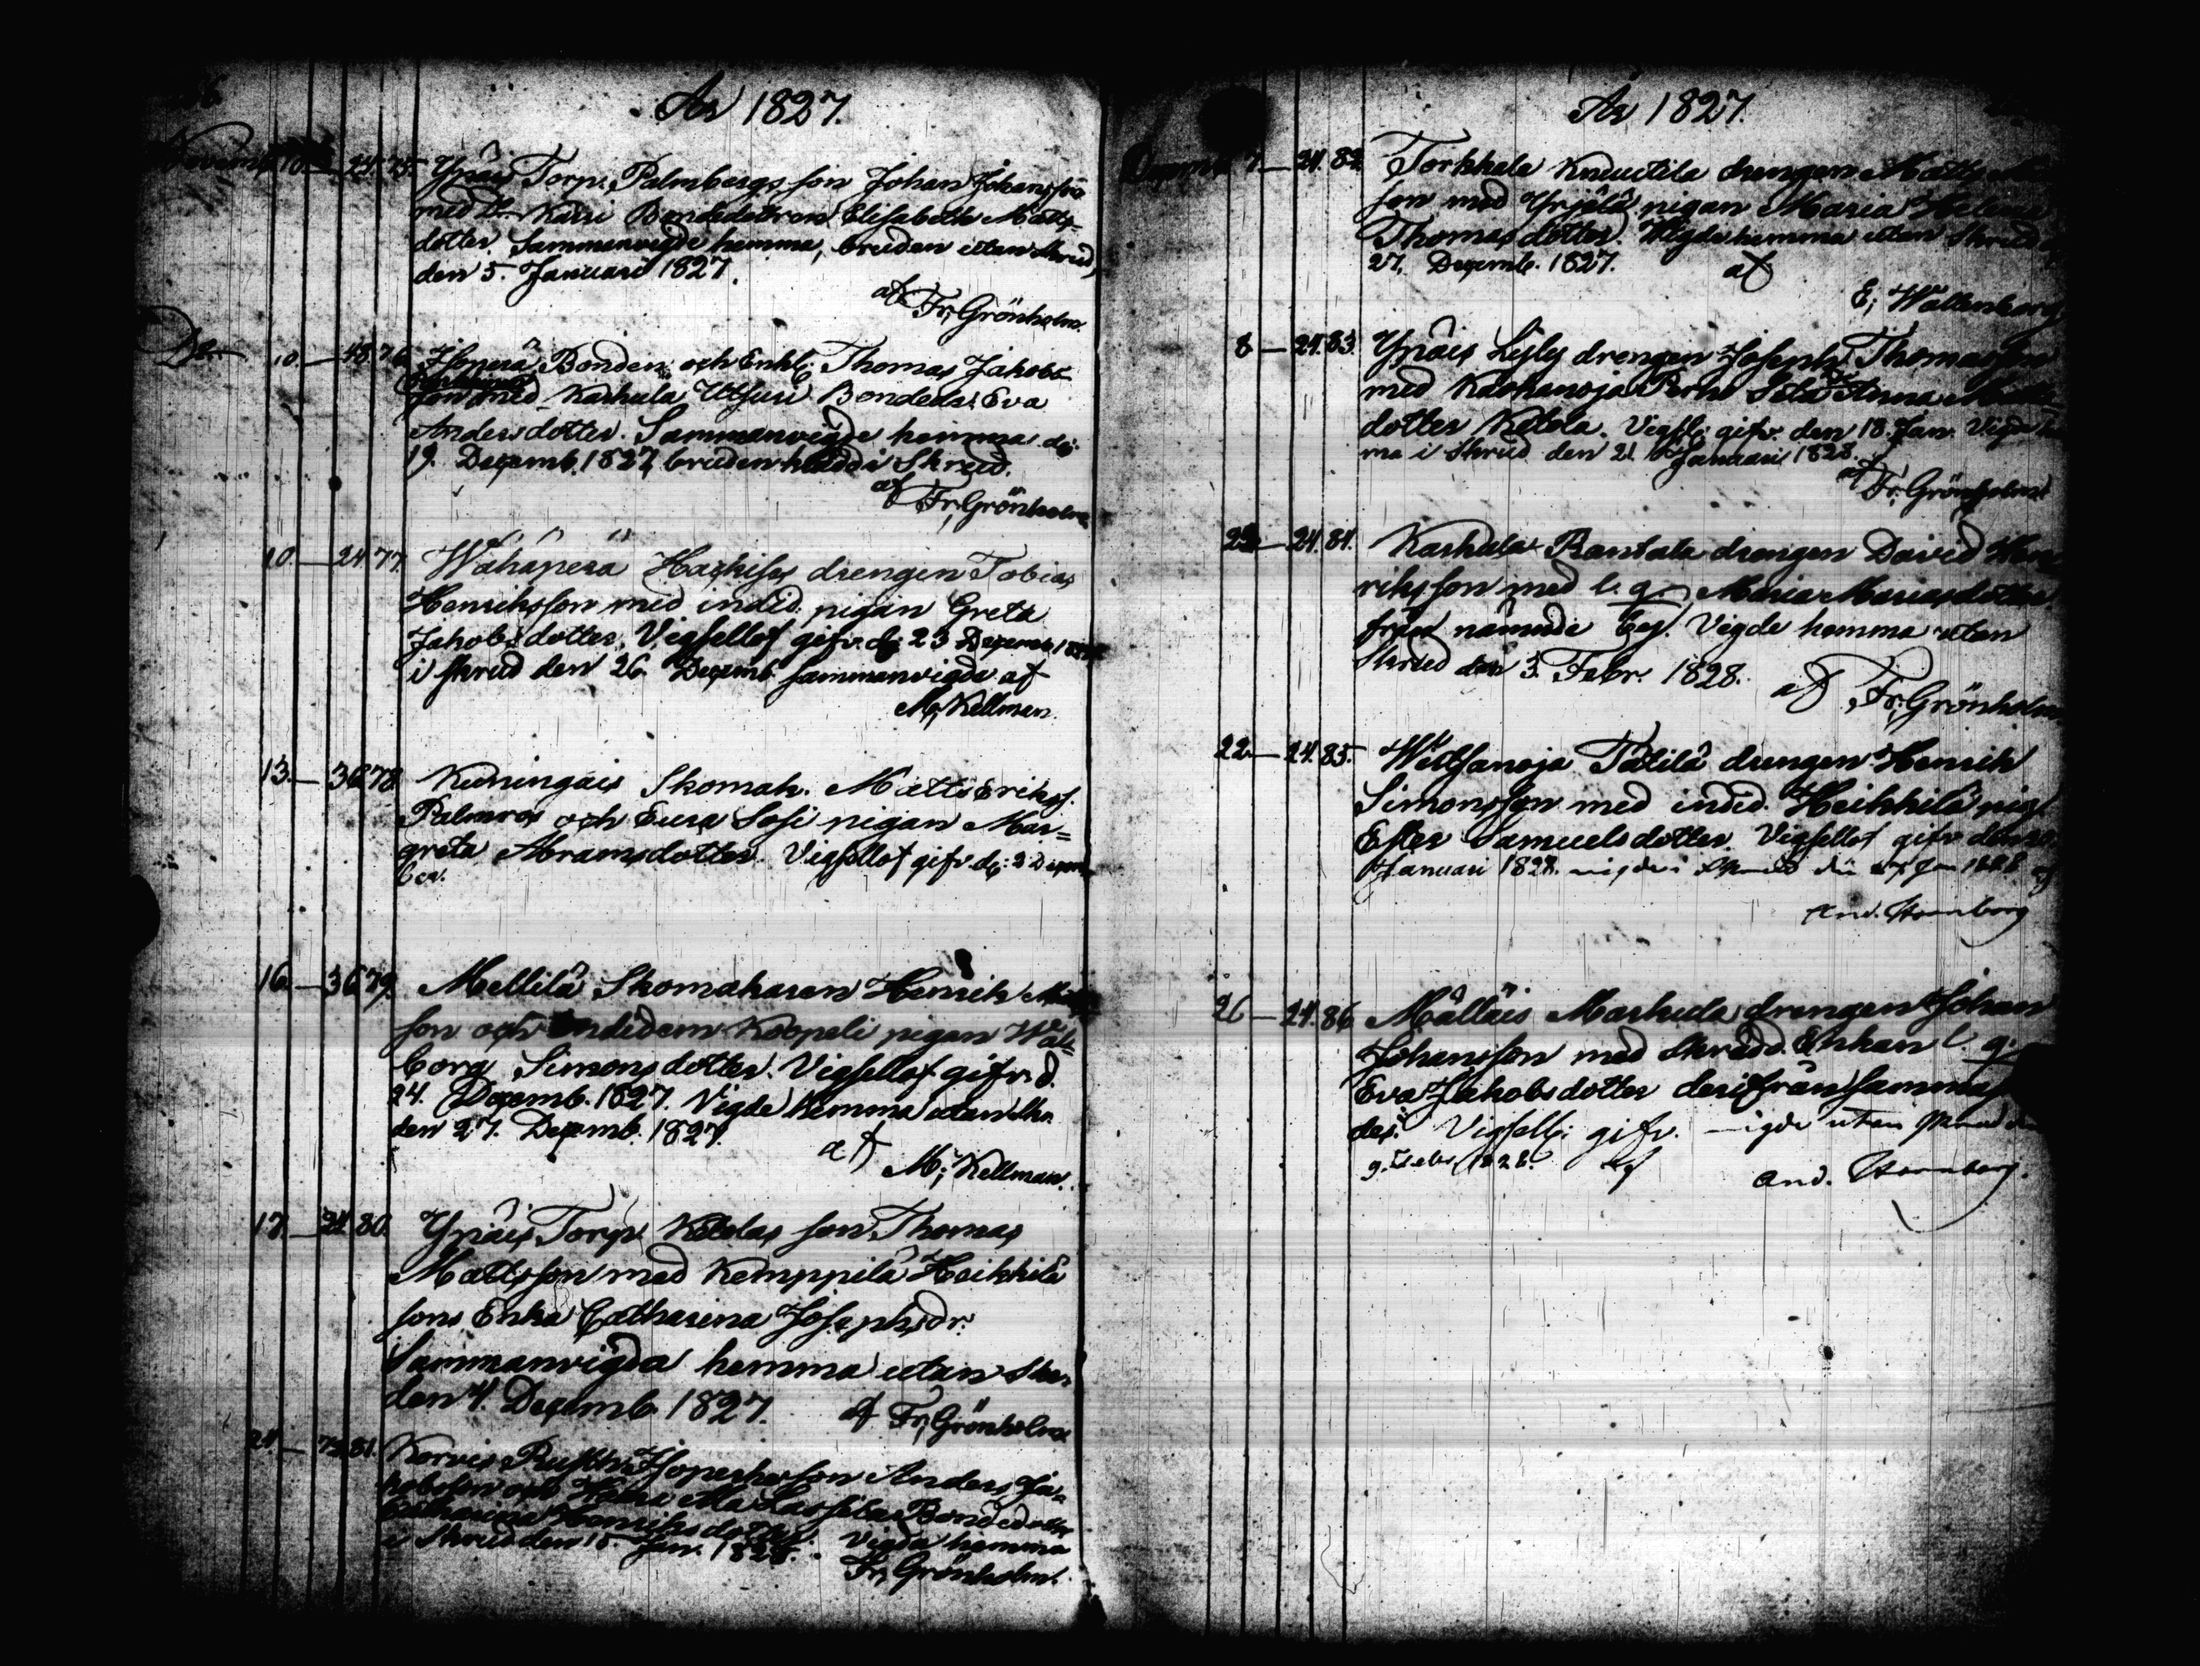 År 1827.
Novemb. 10. — 24. 75. Ypäis Torp. Palmbergs son Johan Johansson
med Kassi Bondedottren Elisabeth Matts-
dotter. Sammanvigde hemma, bruden utan skrud,
den 5. Januari 1827.
af Fr. Grönholm.
Do 10. — 48. 76. Isoperä Bonden och Enkl. Thomas Jakobs-
son med Karhula Utsuu Bondedr. Eva
Andersdotter. Sammanvigde hemma d.
19. Decemb. 1827 bruden klädd i Skrud.
af Fr. Grönholm
10. — 24. 77. Wähäperä Harkis drengen Tobias
Henriksson med indid. pigan Greta
Jakobsdotter. Vigsellof gifv. d. 23 Decemb.
i skrud den 26 Decemb. sammanvigda af
M. Kellman.
13. — 36. 78. Kuningais Skomak. Matts Eriks.
Palmros och Eura Sosi pigan Mar-
greta Abramsdotter. Vigsellof gifv. d. 2 Decem-
ber.
16. — 36. 79. Mellilä Skomakaren Henrik
son och indidem Koopeli pigan Wal-
borg Simonsdotter. Vigsellof gifv. d.
24. Decemb. 1827. Vigde hemma utan skr.
den 27. Decemb. 1827.
af M. Kellman.
17. — 24. 80. Ypäis Torp. Ketolas son Thomas
Mattsson med Kemppilä Heikkilä
sons Enka Catharina Josephsdr.
Sammanvigda hemma utan skr.
den 4. Decemb. 1827. af Fr. Grönholm
24. — 81. Korvis Rusth. son Anders Ja-
kobsson och Bondedotter
Catharina Henriksdotter. Vigda hemma
i Skrud den 15. Jan. 1828.
Fr. Grönholm.
År 1827.
Decemb. 7. — 24. 82. Torkkala Knuutila drengen Matts
son med Yrjälä pigan Maria Helena
Thomasdotter. Vigde hemma utan Skrud
27. Decemb. 1827. af
E. Wallenborg
8 — 24. 83. Ypäis drengen Joseph Thomasson
med Karhanoja Perho Anna Matts-
dotter Ketola. Vigsl. gifv. den 18. Jan. Vigde
ma i Skrud den 21. Januari 1828.
af Fr. Grönholm
— 24. 84. Karhula Rantala drengen David Hen-
riksson med l. q. Maria Mariasdotter
från nämnde by. Vigde hemma utan
Skrud den 3. Febr. 1828.
af Fr. Grönholm
22. — 24. 85. Wirtsanoja Tätilä drengen Henrik
Simonsson med indid. Heikkilä pig.
Ester Samuelsdotter. Vigsellof gifv. den
Januari 1828.
And. Hornborg
26 — 24. 86. Mälläis Markula drengen Johan
Johansson med Skrädd. Enkan l. q.
Eva Jakobsdotter derifrån samma
dag. Vigsell. gifv. vigde utan skrud
9. Febr. 1828. af And. Hornborg.